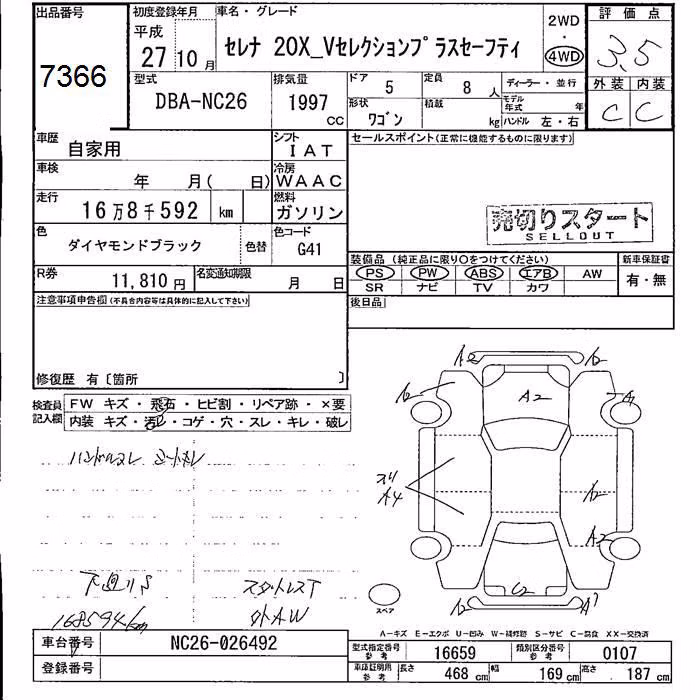 出品番号
7366
初度登録年月
平成
27 10月
車名・グレード
セレナ 20X_Vセレクションプラスセーフティ
2WD
・
4WD
評価点
3.5
外装 内装
C C
型式
DBA-NC26
排気量
1997
CC
ドア
5
定員
8人
形状
ワゴン
積載
kg
ディーラー・並行
モデル
年式
年
ハンドル 左・右
車歴
自家用
シフト
IAT
セールスポイント(正常に機能するものに限ります)
車検
年 月( 日)
冷房
WAAC
走行
16万8千592 km
燃料
ガソリン
売切りスタート
SELLOUT
色
ダイヤモンドブラック
色替
色コード
G41
装備品(純正品に限り○をつけてください)
PS PW ABS エアB AW
SR ナビ TV カワ
新車保証書
有・無
R券
11,810円
名変通知期限
月 日
後日品
注意事項申告欄(不具合内容等は具体的に記入して下さい)
修復歴 有〔箇所 〕
検査員
記入欄
FW キズ・飛石・ヒビ割・リペア跡・×要
内装 キズ・汚レ・コゲ・穴・スレ・キレ・破レ
ハンドルスレ シートスレ
下廻りS
スタットレスT
168594km
外AW
A2 A2
A2 A2 A
スリ
A4
A2
A2
C2
A2 A1
スペア
A-キズ E-エクボ U-凹み W-補修跡 S-サビ C-腐食 XX-交換済
車台番号
NC26-026492
登録番号
型式指定番号
参考
16659
類別区分番号
参考
0107
車庫証明用
参考
長さ
468 cm
幅
169 cm
高さ
187 cm